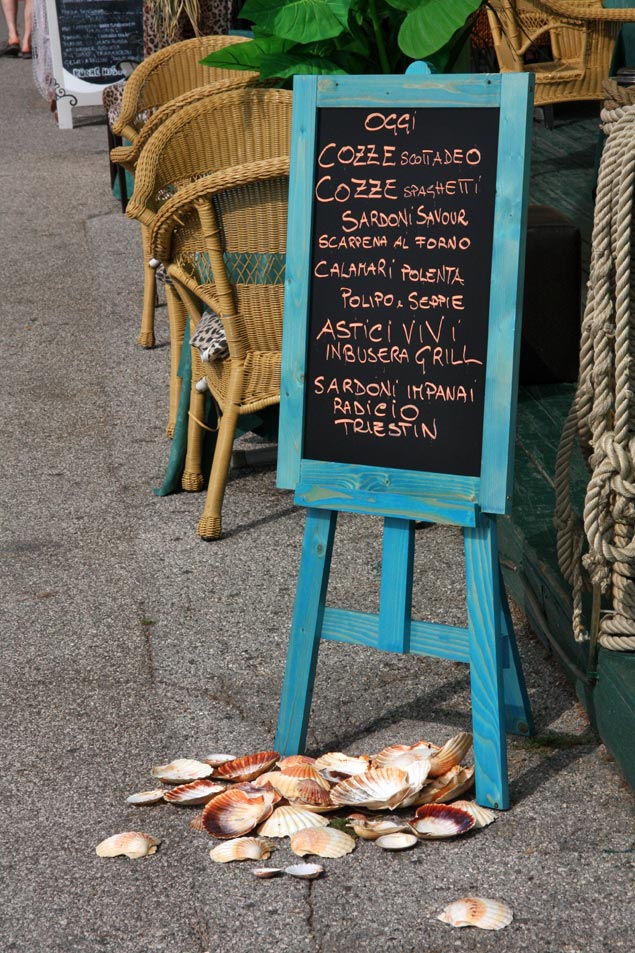 OGGI
COZZE SCOTTADEO
COZZE SPAGHETTI
SARDONI SAVOUR
SCARPENA AL FORNO
CALAMARI POLENTA
POLIPO e SEPPIE
ASTICI VIVI
IN BUSERA GRILL
SARDONI IMPANAI
RADICIO
TRIESTIN